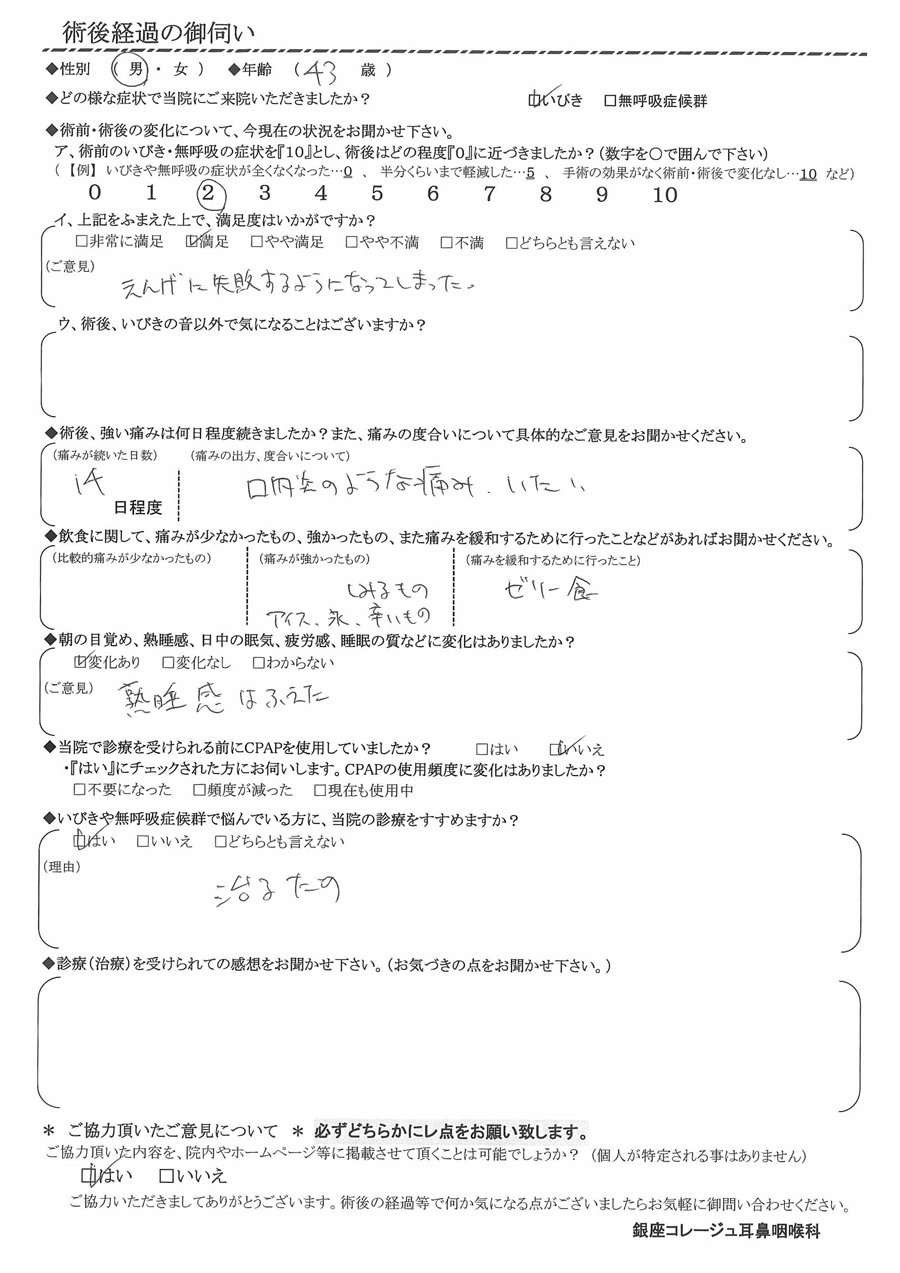 術後経過の御伺い
◆性別 （ 男 ・ 女 ） ◆年齢 （ 43 歳 ）
◆どの様な症状で当院にご来院いただきましたか？ ☑いびき □無呼吸症候群
◆術前・術後の変化について、今現在の状況をお聞かせ下さい。
ア、術前のいびき・無呼吸の症状を『10』とし、術後はどの程度『0』に近づきましたか？（数字を○で囲んで下さい）
（【例】 いびきや無呼吸の症状が全くなくなった…0 、 半分くらいまで軽減した…5 、 手術の効果がなく術前・術後で変化なし…10 など）
0 1 2 3 4 5 6 7 8 9 10
イ、上記をふまえた上で、満足度はいかがですか？
□非常に満足 ☑満足 □やや満足 □やや不満 □不満 □どちらとも言えない
（ご意見）
えんげに失敗するようになってしまった。
ウ、術後、いびきの音以外で気になることはございますか？
◆術後、強い痛みは何日程度続きましたか？また、痛みの度合いについて具体的なご意見をお聞かせください。
（痛みが続いた日数） （痛みの出方、度合いについて）
14 日程度 口内炎のような痛み．いたい
◆飲食に関して、痛みが少なかったもの、強かったもの、また痛みを緩和するために行ったことなどがあればお聞かせください。
（比較的痛みが少なかったもの） （痛みが強かったもの） （痛みを緩和するために行ったこと）
しみるもの ゼリー食
アイス、氷、辛いもの
◆朝の目覚め、熟睡感、日中の眠気、疲労感、睡眠の質などに変化はありましたか？
☑変化あり □変化なし □わからない
（ご意見）
熟睡感はふえた
◆当院で診療を受けられる前にCPAPを使用していましたか？ □はい ☑いいえ
・『はい』にチェックされた方にお伺いします。CPAPの使用頻度に変化はありましたか？
□不要になった □頻度が減った □現在も使用中
◆いびきや無呼吸症候群で悩んでいる方に、当院の診療をすすめますか？
☑はい □いいえ □どちらとも言えない
（理由）
治るため
◆診療（治療）を受けられての感想をお聞かせ下さい。（お気づきの点をお聞かせ下さい。）
＊ ご協力頂いたご意見について ＊ 必ずどちらかにレ点をお願い致します。
ご協力頂いた内容を、院内やホームページ等に掲載させて頂くことは可能でしょうか？ （個人が特定される事はありません）
☑はい □いいえ
ご協力いただきましてありがとうございます。術後の経過等で何か気になる点がございましたらお気軽に御問い合わせください。
銀座コレージュ耳鼻咽喉科